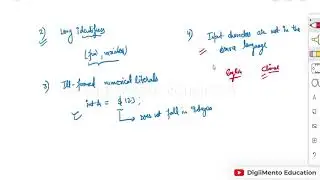 2) Long identifiers
(fun, variables)
3) Ill-formed numerical literals
int a = $123;
does not fall in integers
4) Input characters are not in the
source language
English
Chinese
DigiiMento Education